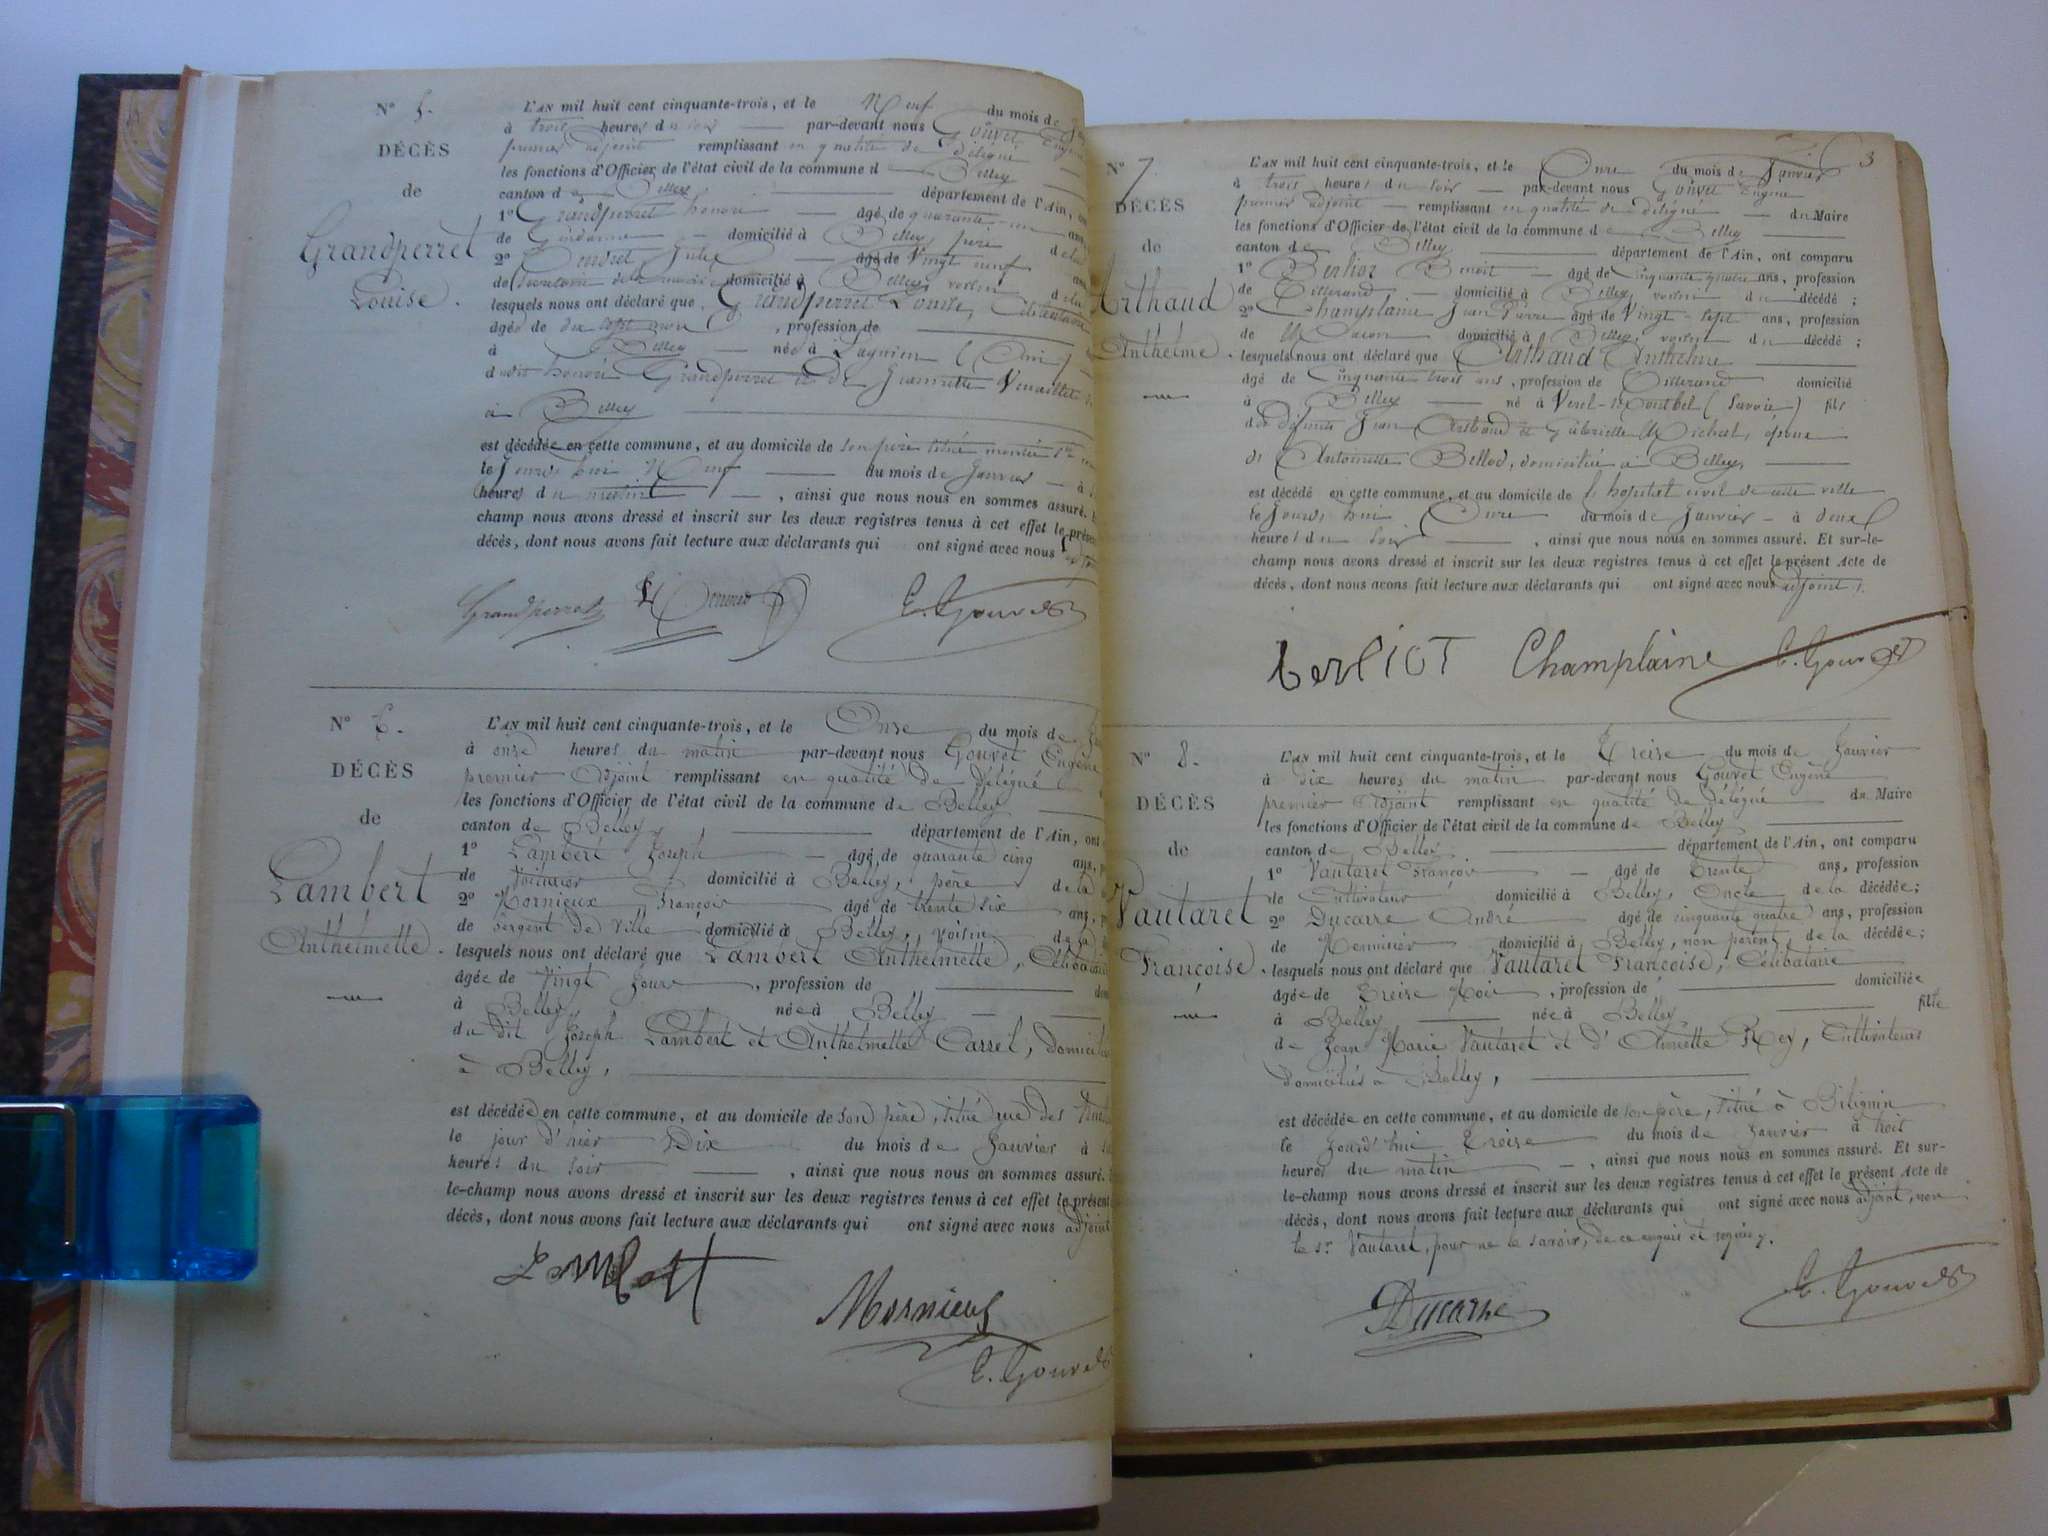 N° 5.
DÉCÈS
de
Grandperret
Louise.
L'AN mil huit cent cinquante-trois, et le Neuf du mois de
à trois heures du soir par-devant nous Gouvet Eugène
premier adjoint remplissant en qualité de délégué
les fonctions d'Officier de l'état civil de la commune de Belley
canton de Belley département de l'Ain, ont
1° Grandperret honoré âgé de quarante-un ans
de Gendarme domicilié à Belley, père de la
2° Jules âgé de Vingt neuf ans
de Secrétaire de la mairie domicilié à Belley, voisin de la
lesquels nous ont déclaré que Grandperret Louise, Célibataire
âgée de dix sept mois, profession de
à Belley née à Lagnieu (Ain)
dudit honoré Grandperret et de Jeannette
à Belley
est décédée en cette commune, et au domicile de son père situé
le Jourd'hui Neuf du mois de Janvier à
heures du matin, ainsi que nous nous en sommes assuré.
champ nous avons dressé et inscrit sur les deux registres tenus à cet effet le présent
décès, dont nous avons fait lecture aux déclarants qui ont signé avec nous
Grandperret E. Gouvet
N° 6.
DÉCÈS
de
Lambert
Anthelmette.
L'AN mil huit cent cinquante-trois, et le Onze du mois de
à onze heures du matin par-devant nous Gouvet Eugène
premier Adjoint remplissant en qualité de délégué
les fonctions d'Officier de l'état civil de la commune de Belley
canton de Belley département de l'Ain, ont
1° Lambert Joseph âgé de quarante cinq ans,
de Voiturier domicilié à Belley, père de la
2° Mornieux François âgé de trente six ans,
de Sergent de Ville domicilié à Belley, voisin de la
lesquels nous ont déclaré que Lambert Anthelmette, Célibataire
âgée de Vingt Jours, profession de
à Belley née à Belley
du dit Joseph Lambert et Anthelmette Carrel, domiciliés
à Belley,
est décédée en cette commune, et au domicile de son père, situé rue des
le jour d'hier Dix du mois de Janvier à
heures du soir, ainsi que nous nous en sommes assuré.
le-champ nous avons dressé et inscrit sur les deux registres tenus à cet effet le présent
décès, dont nous avons fait lecture aux déclarants qui ont signé avec nous adjoint
Lambert
Mornieux
E. Gouvet
3
N° 7.
DÉCÈS
de
Arthaud
Anthelme.
L'AN mil huit cent cinquante-trois, et le Onze du mois de Janvier
à trois heures du soir par-devant nous Gouvet Eugène
premier adjoint remplissant en qualité de délégué du Maire
les fonctions d'Officier de l'état civil de la commune de Belley
canton de Belley département de l'Ain, ont comparu
1° Berlioz Benoit âgé de cinquante quatre ans, profession
de Tisserand domicilié à Belley, voisin du décédé ;
2° Champlaine Jean Pierre âgé de Vingt-sept ans, profession
de Maçon domicilié à Belley, voisin du décédé ;
lesquels nous ont déclaré que Arthaud Anthelme
âgé de Cinquante trois ans, profession de Tisserand domicilié
à Belley né à Verel-Montbel (Savoie) fils
des défunts Jean Arthaud et Gabrielle Michal, époux
de Antoinette Bellod, domiciliée à Belley,
est décédé en cette commune, et au domicile de l'hopital civil de cette ville
le Jourd'hui Onze du mois de Janvier à deux
heures du soir, ainsi que nous nous en sommes assuré. Et sur-le-
champ nous avons dressé et inscrit sur les deux registres tenus à cet effet le présent Acte de
décès, dont nous avons fait lecture aux déclarants qui ont signé avec nous adjoint.
berlioT Champlaine E. Gouvet
N° 8.
DÉCÈS
de
Vautaret
Françoise.
L'AN mil huit cent cinquante-trois, et le Treize du mois de Janvier
à dix heures du matin par-devant nous Gouvet Eugène
premier Adjoint remplissant en qualité de délégué du Maire
les fonctions d'Officier de l'état civil de la commune de Belley
canton de Belley département de l'Ain, ont comparu
1° Vautaret François âgé de trente ans, profession
de Cultivateur domicilié à Belley, Oncle de la décédée;
2° Ducarre André âgé de cinquante quatre ans, profession
de Menuisier domicilié à Belley, non parent, de la décédée;
lesquels nous ont déclaré que Vautaret Françoise, Célibataire
âgée de Treize Mois, profession de domiciliée
à Belley née à Belley fille
de Jean Marie Vautaret et d' Rey, Cultivateurs
domiciliés à Belley,
est décédée en cette commune, et au domicile de son père, situé à Billignin
le Jourd'hui Treize du mois de Janvier à trois
heures du matin, ainsi que nous nous en sommes assuré. Et sur-
le-champ nous avons dressé et inscrit sur les deux registres tenus à cet effet le présent Acte de
décès, dont nous avons fait lecture aux déclarants qui ont signé avec nous adjoint, non
le sr Vautaret, pour ne le savoir, de ce enquis et requis.
Ducarre E. Gouvet